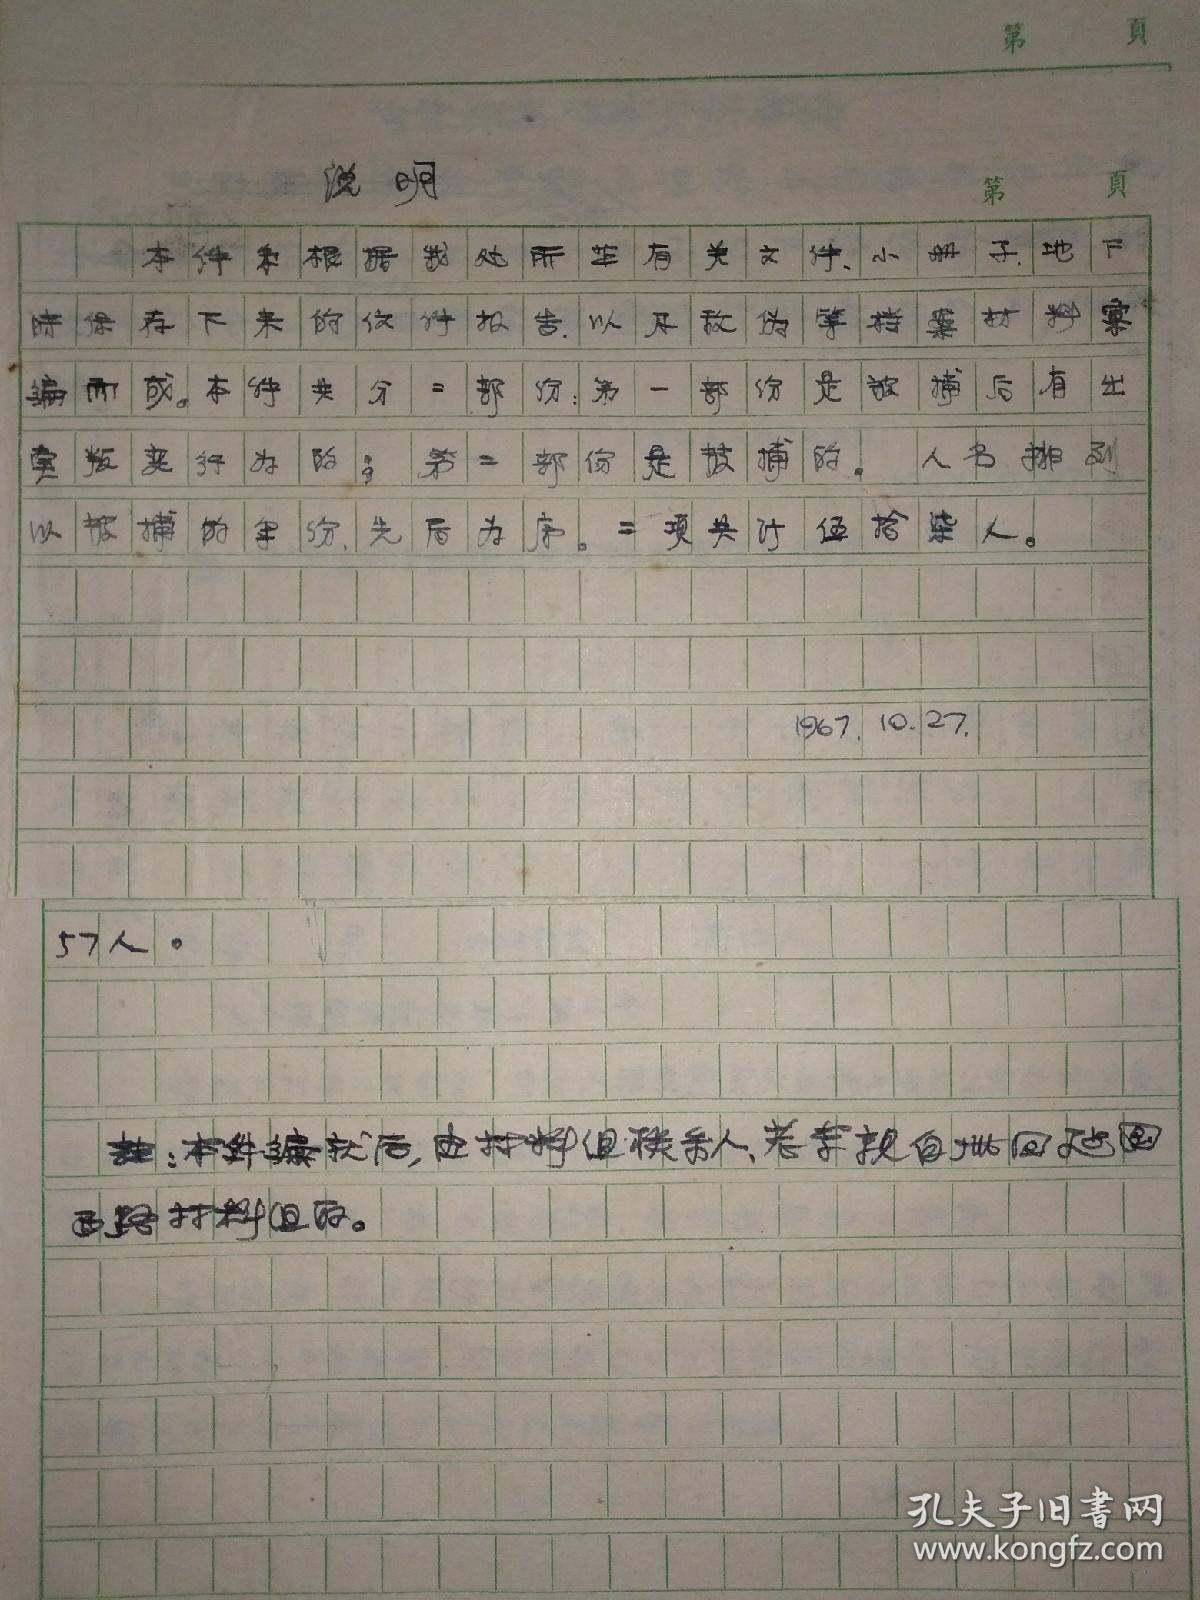 第 頁
说明
第 頁
本件系根据我处所在有关文件、小册子、地下
时保存下来的伩件报告、以及敌伪等档案材料案
编而成。本件共分二部份：第一部份是被捕后有出
卖叛变行为的；第二部份是被捕的。人名排列
以被捕的年份先后为序。二项共计伍拾柒人。
1967.10.27.
57人。
註：本件编就后，由材料组联系人、老李亲自批回
西路材料组的。
孔夫子旧书网
www.kongfz.com